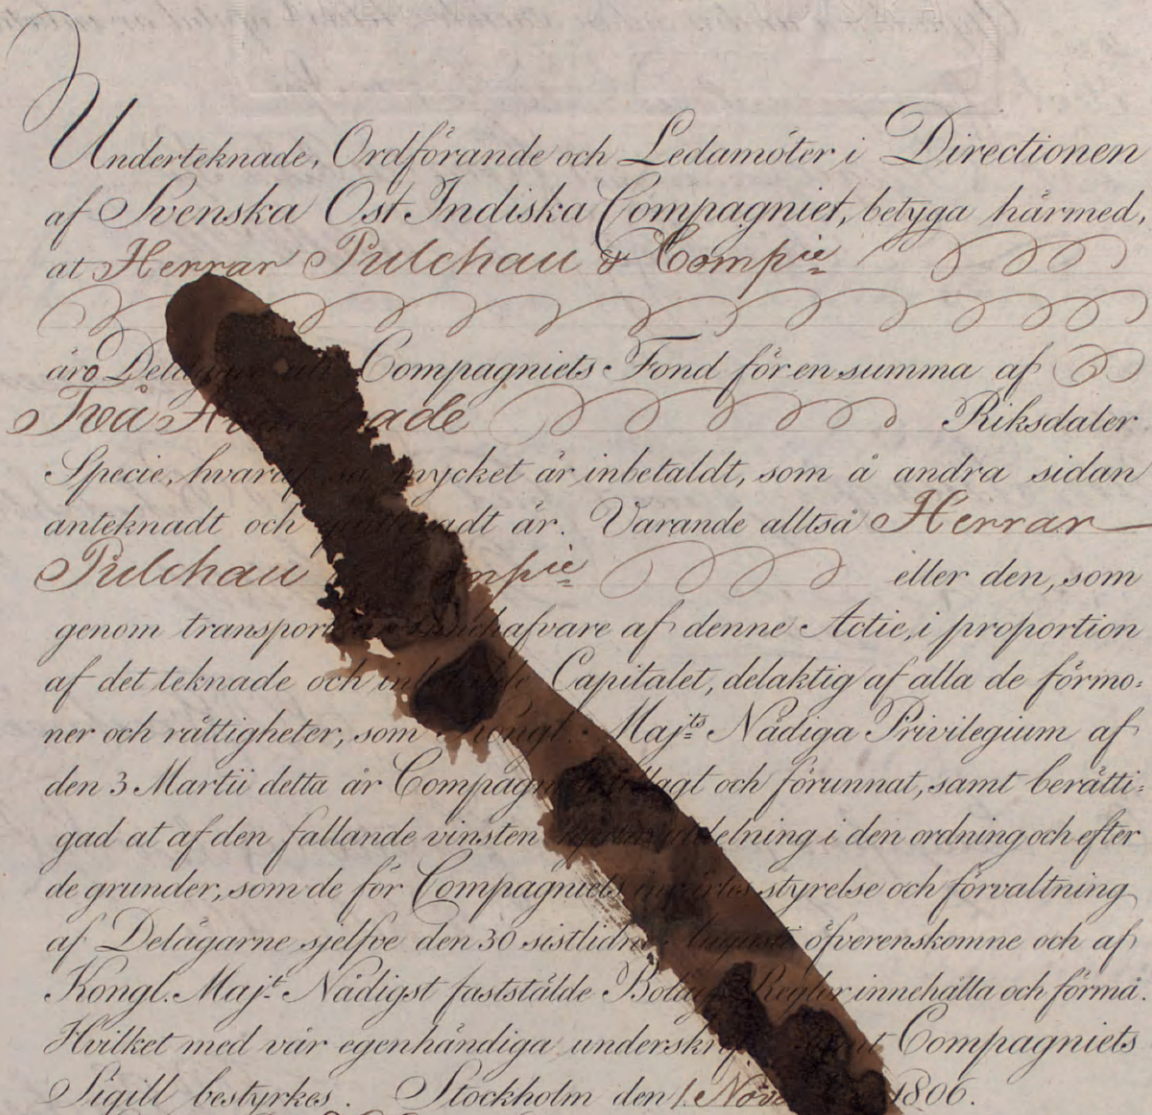 Underteknade, Ordförande och Ledamöter i Directionen
af Svenska Ost Indiska Compagniet, betyga härmed,
at Herrar Pulchau & Comp<sup>ie</sup>
äro Compagniets Fond för en summa af
Två Riksdaler
Specie, hvaraf så mycket är inbetaldt, som å andra sidan
anteknadt och är. Varande alltså Herrar
Pulchau eller den, som
genom afvare af denne Actie, i proportion
af det teknade och Capitalet, delaktig af alla de förmo-
ner och rättigheter, som Kongl. Maj:ts Nådiga Privilegium af
den 3 Martii detta år och förunnat, samt berätti-
gad at af den fallande vinsten i den ordning och efter
de grunder, som de för Compagniets styrelse och förvaltning
af Delägarne sjelfve den 30 sistlidne Augusti öfverenskomne och af
Kongl. Maj:t Nådigst fastställde Regler innehålla och förmå.
Hvilket med vår egenhändiga samt Compagniets
Sigill bestyrkes. Stockholm den 1 1806.